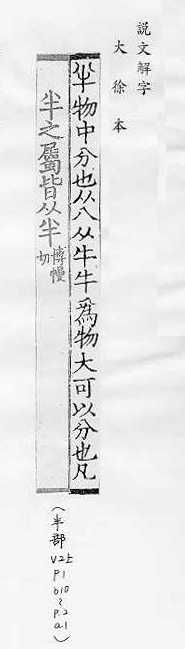 説文解字
大徐本
半物中分也从八从牛牛爲物大可以分也凡
半之屬皆从半博幔
切
(半部
V2上
P1
b10
~
P.2
a1)